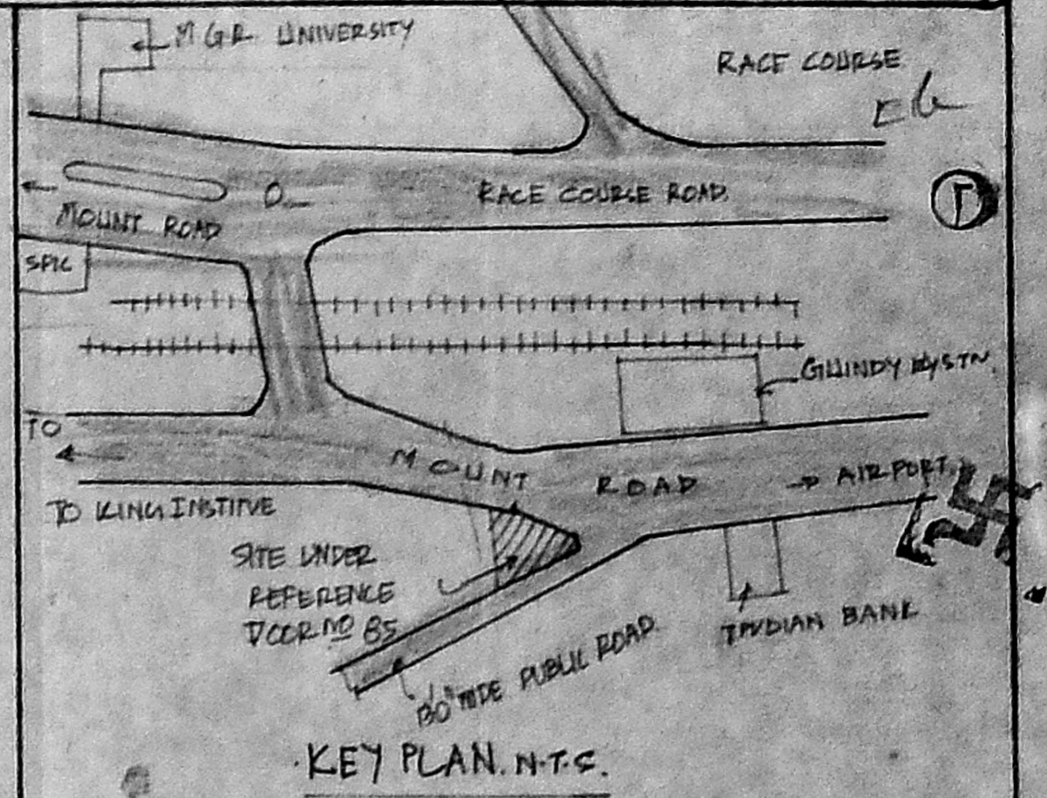 M.G.R. UNIVERSITY
RACE COURSE
RACE COURSE ROAD.
MOUNT ROAD
SPIC
GUINDY RLY STN.
TO
MOUNT ROAD
AIRPORT
TO KING INSTITVE
SITE UNDER
REFERENCE
DOOR NO 85
INDIAN BANK
WIDE PUBLIC ROAD
KEY PLAN. N.T.S.